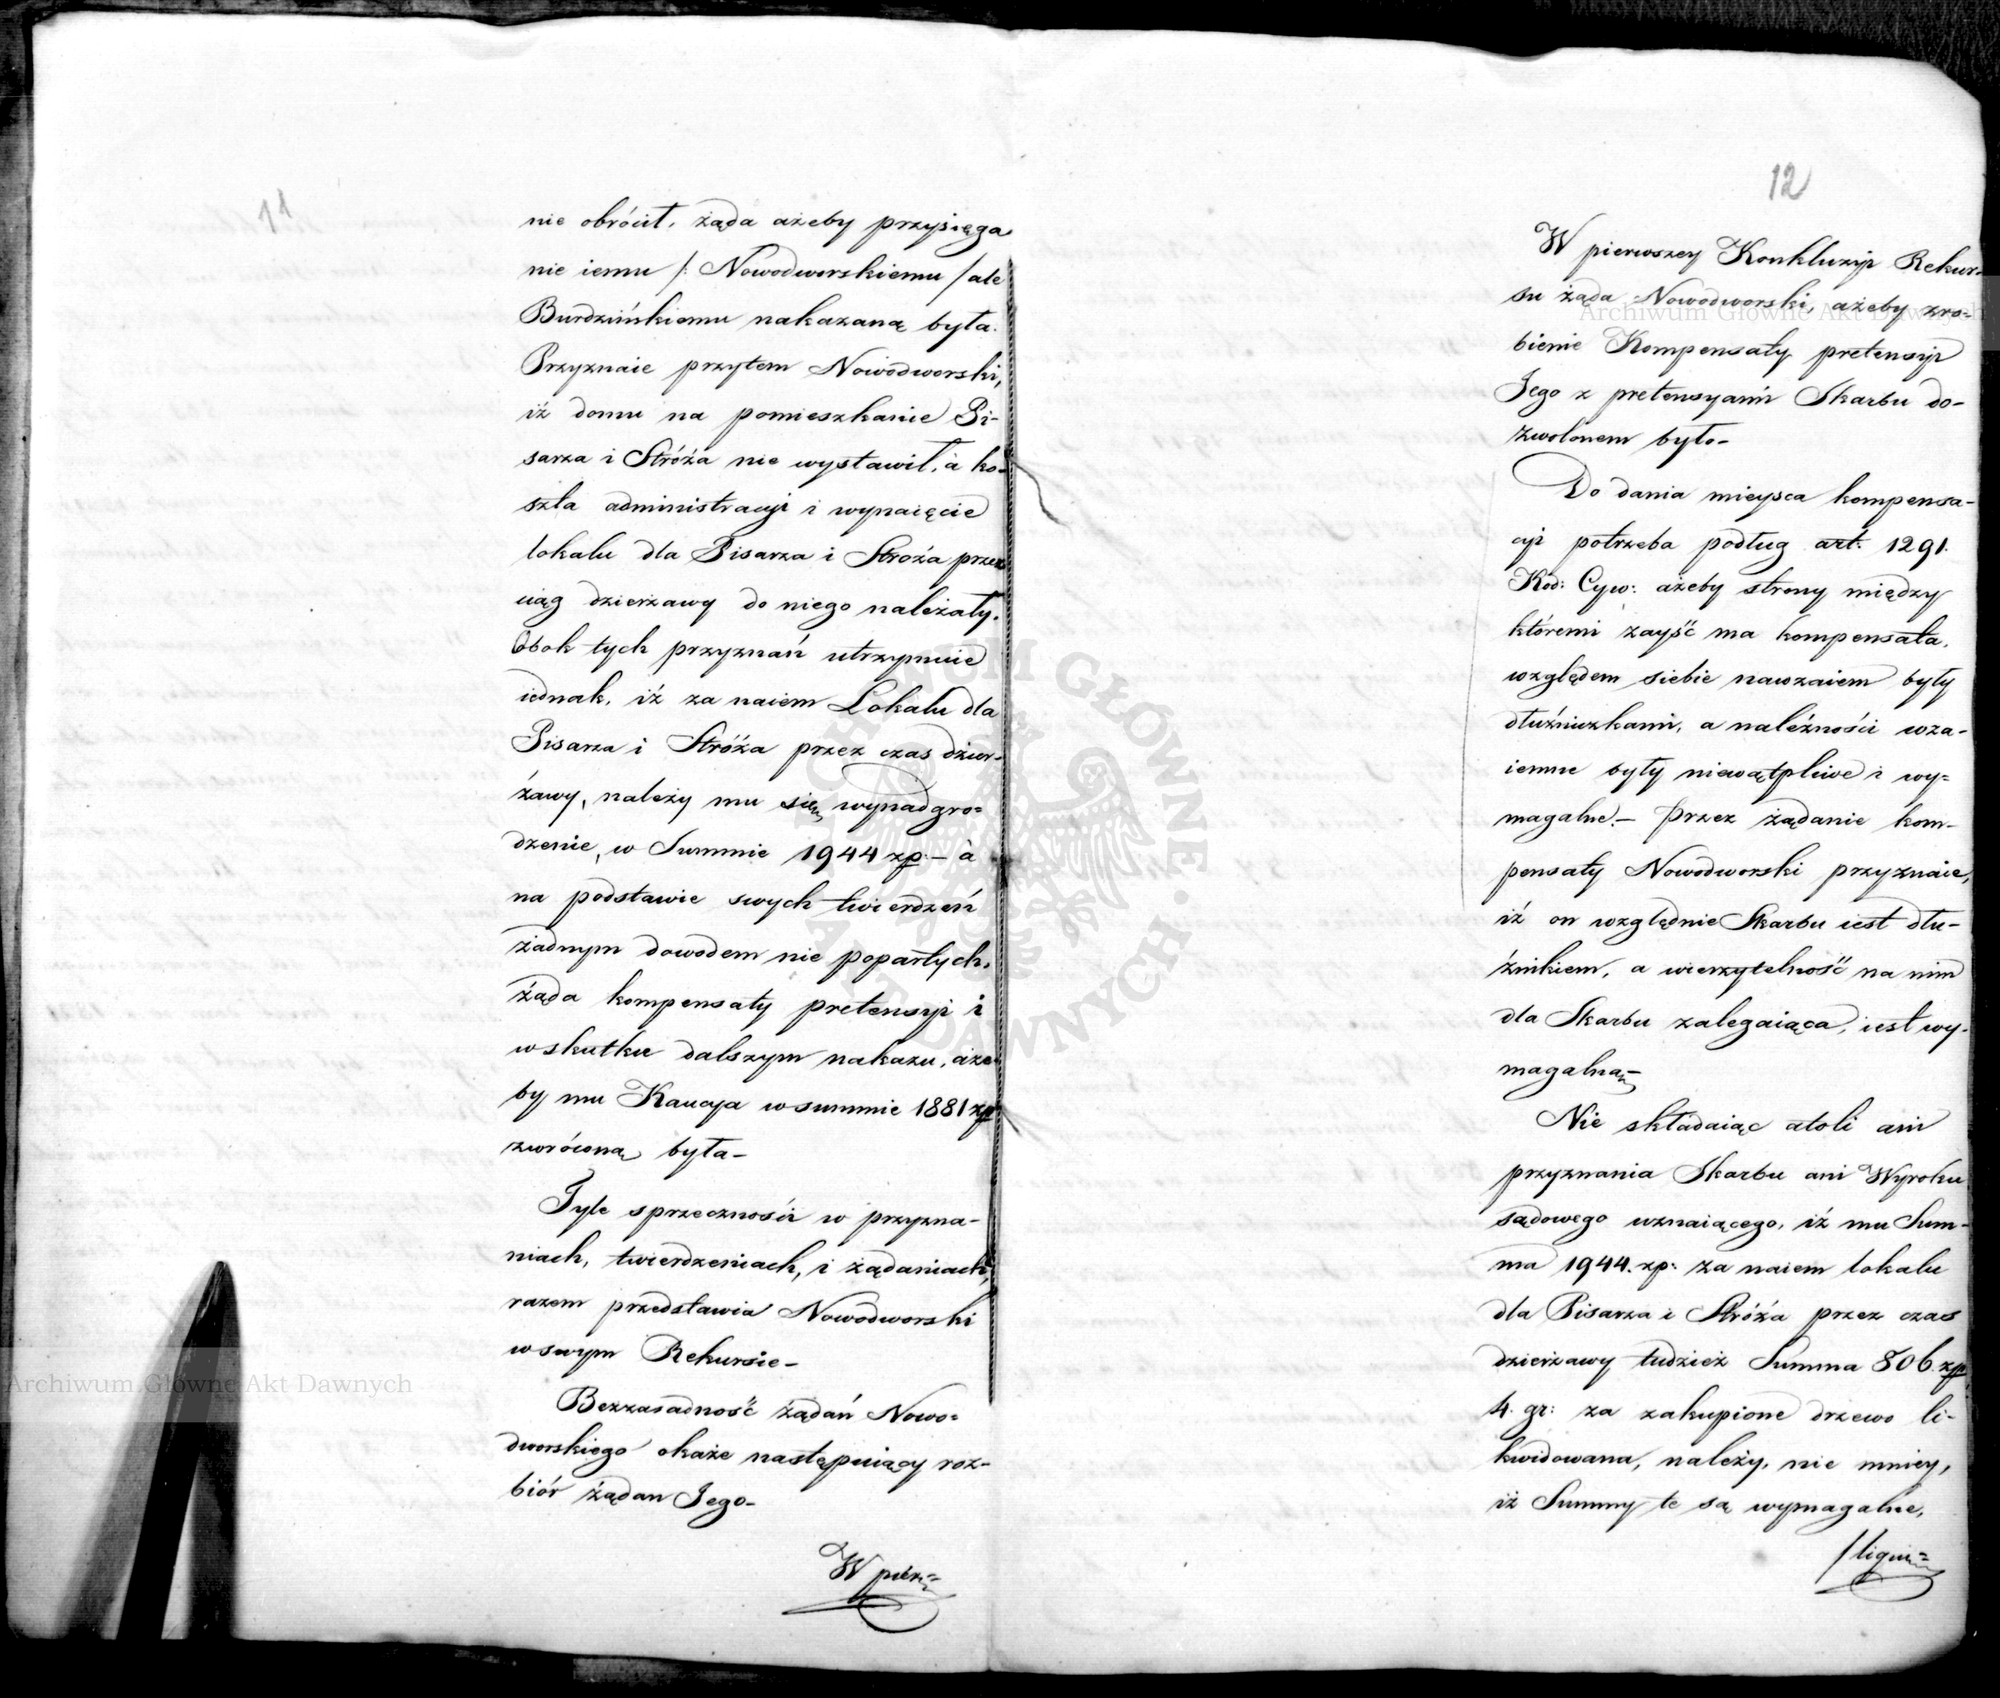 11
nie obrócił, żąda ażeby przysięga
nie iemu /: Nowodworskiemu / ale
Burdzińskiemu nakazaną była.
Przyznaie przytem Nowodworski,
iż domu na pomieszkanie Pi-
sarza i Stróża nie wystawił, à ko-
szta administracyi i wynaięcie
lokalu dla Pisarza i Stroża przez
ciąg dzierżawy do niego należały.
Obok tych przyznań utrzymuie
iednak, iż za naiem Lokalu dla
Pisarza i Stróża przez czas dzier-
żawy, należy mu się wynadgro=
dzenie, w Summie 1944 zp. – à
na podstawie swych twierdzeń
żadnym dowodem nie popartych,
żąda kompensaty pretensyi i
w skutku dalszym nakazu, aże-
by mu Kaucya w summie 1881 zp
zwróconą była –
Tyle sprzeczności w przyzna-
niach, twierdzeniach, i żądaniach,
razem przedstawia Nowodworski
w swym Rekursie –
Bezzasadność żądań Nowo=
dworskiego okaże następuiący roz-
biór żądan Jego –
W pier=
12
W pierwszey Konkluzyi Rekur-
su żąda Nowodworski, ażeby zro-
bienie Kompensaty pretensyi
Jego z pretensyami Skarbu do-
zwolonem było –
Do dania mieysca kompensa-
cyi potrzeba podług art: 1291.
Kod: Cyw: ażeby strony między
któremi zayść ma kompensata,
względem siebie nawzaiem były
dłużniczkami, a należności wza-
iemne były niewątpliwe i wy=
magalne. – Przez żądanie kom-
pensaty Nowodworski przyznaie,
iż on względnie Skarbu iest dłu-
żnikiem, a wierzytelność na nim
dla Skarbu zalegaiąca, iest wy-
magalna –
Nie składaiąc atoli ani
przyznania Skarbu ani Wyroku
sądowego uznaiącego, iż mu Sum-
ma 1944. zp: za naiem lokalu
dla Pisarza i Stróża przez czas
dzierżawy tudzież Summa 806. zp
4. gr: za zakupione drzewo li-
kwidowana, należy, nie mniey,
iż Summy te są wymagalne,
Archiwum Główne Akt Dawnych
Archiwum Główne Akt Dawnych
ARCHIWUM GŁÓWNE AKT DAWNYCH